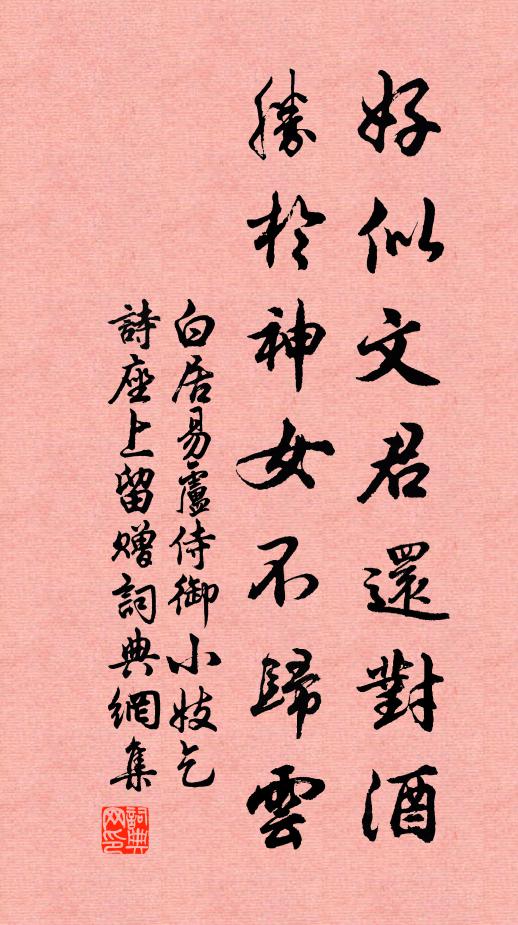 好似文君還對酒
勝於神女不歸雲
白居易盧侍御小妓乞
詩座上留贈詞典網集
詞典网印